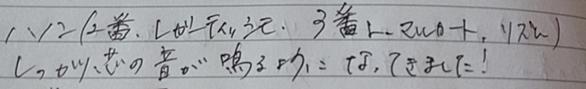 ハノン(2番、レガーティッシモ、3番ト、マルカート、リズム)
しっかり芯の音が鳴るようになってきました!